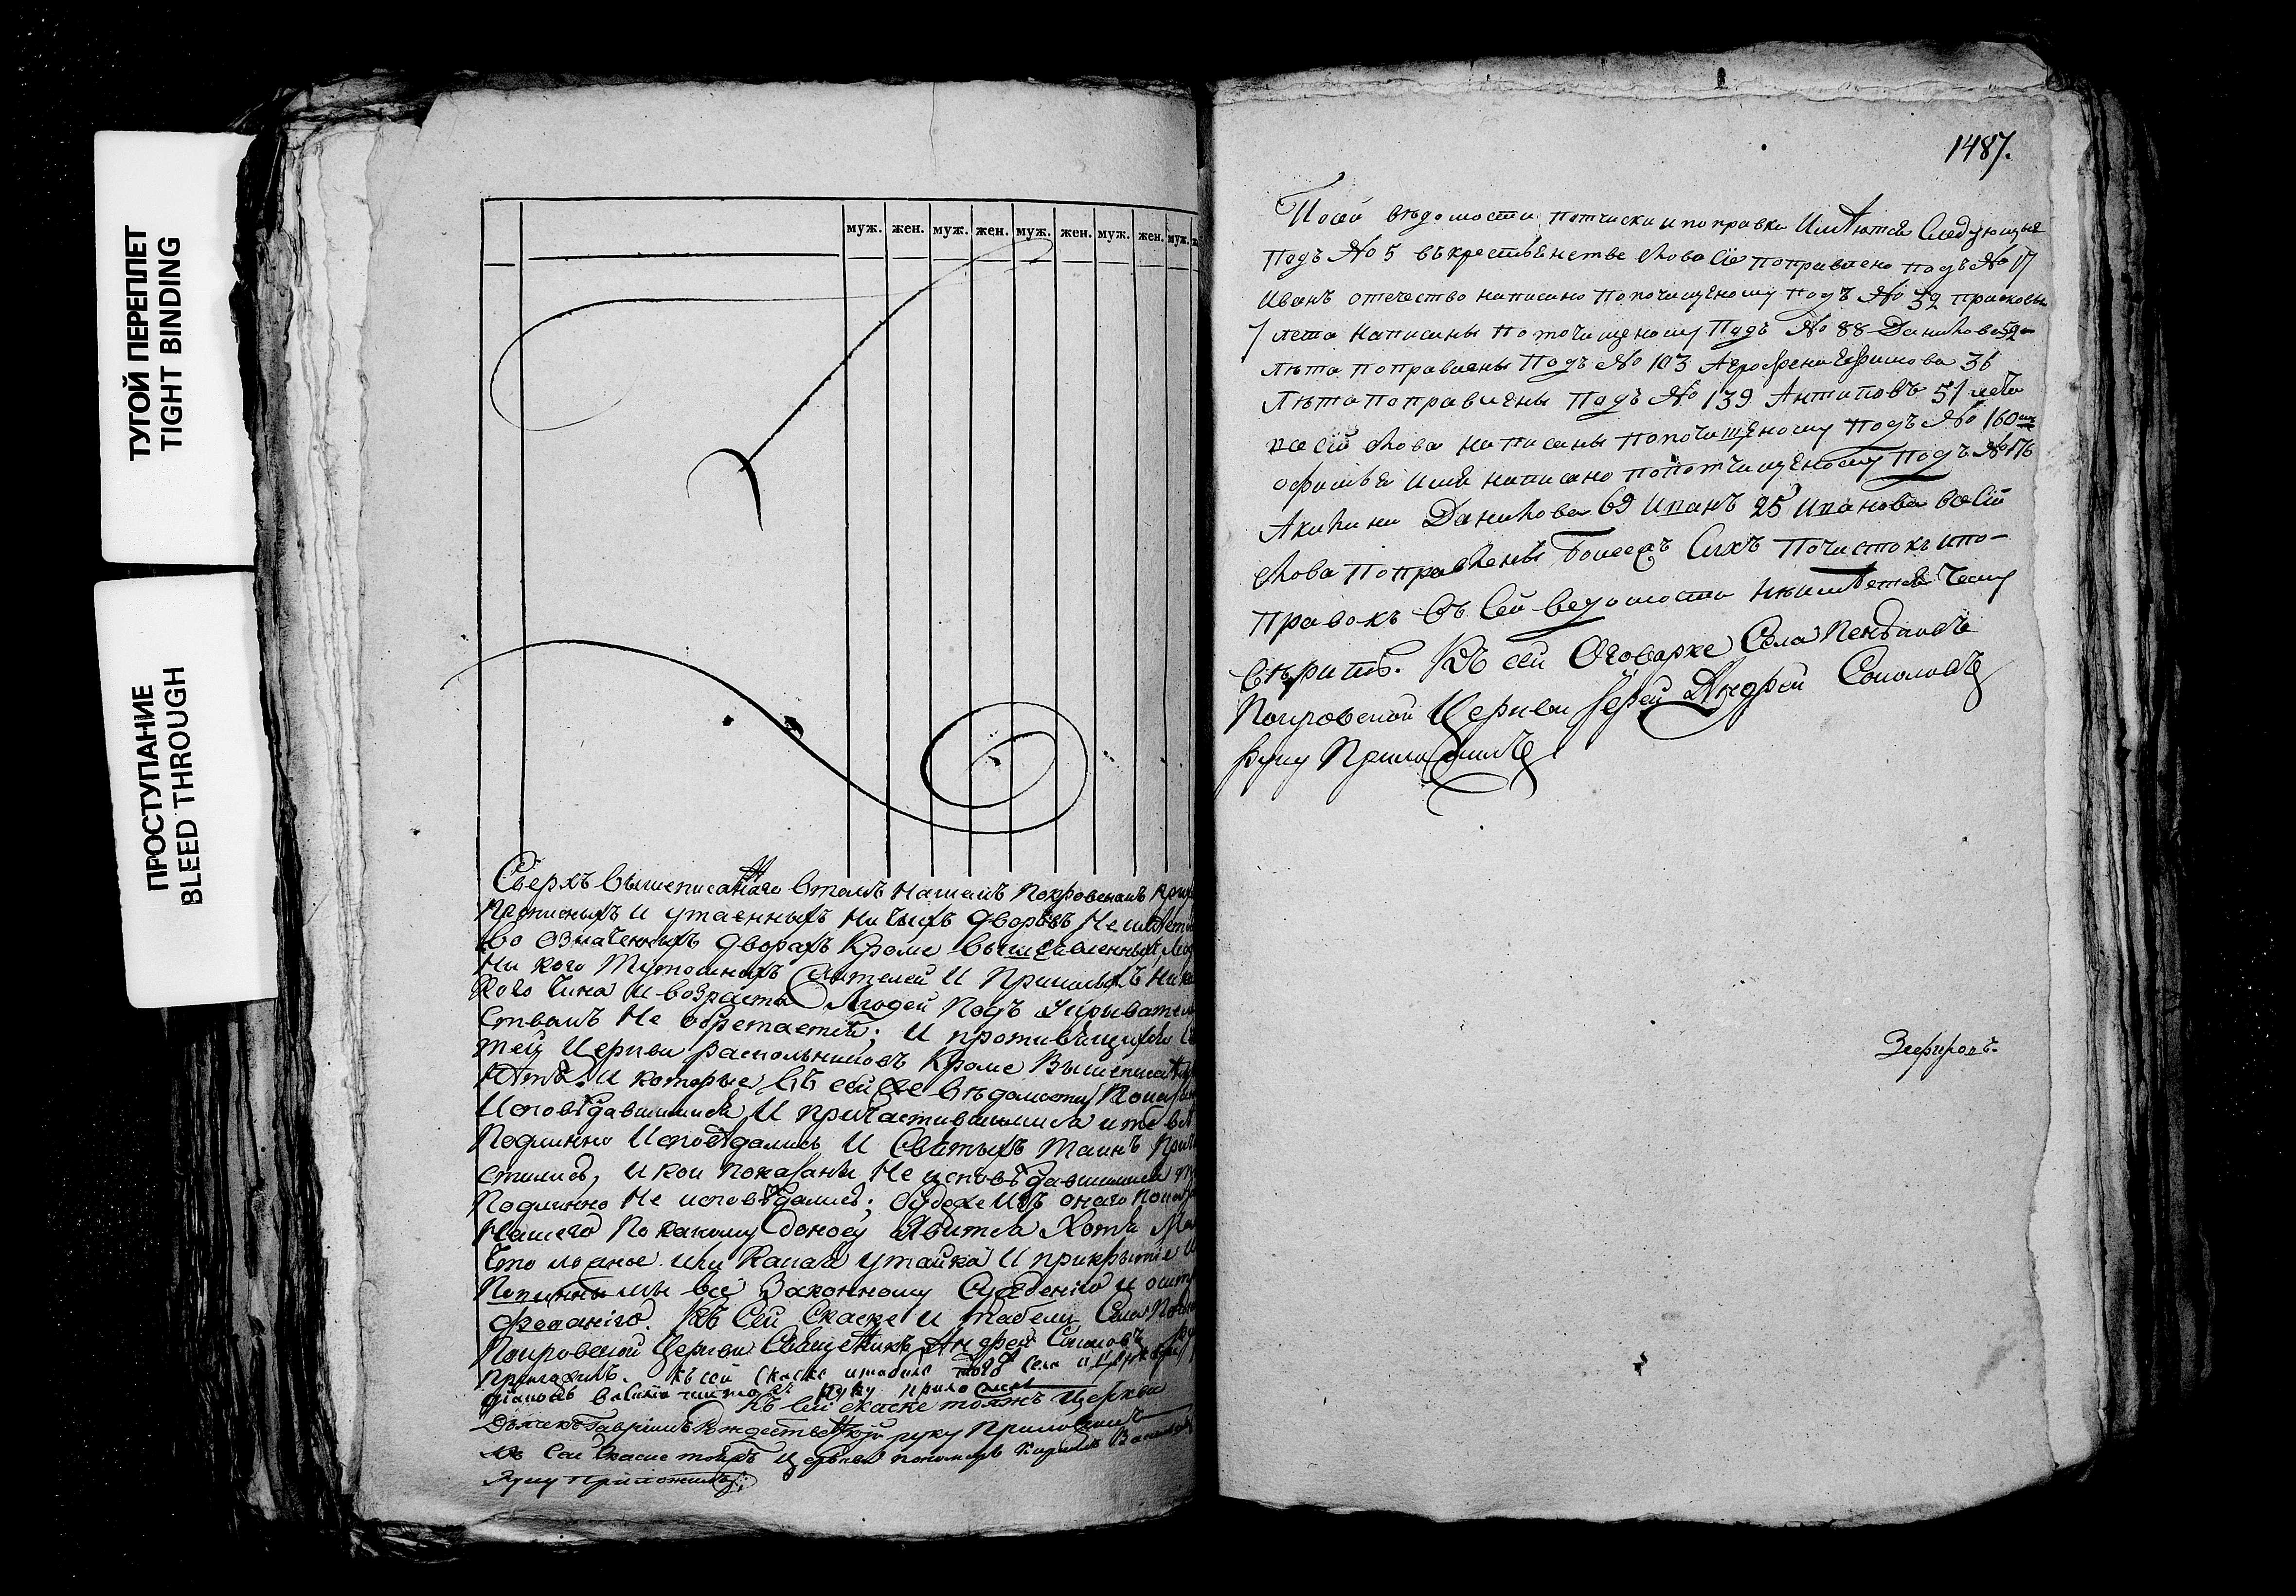 ТУГОЙ ПЕРЕПЛЕТ
TIGHT BINDING
ПРОСТУПАНИЕ
BLEED THROUGH
муж. жен. муж. жен. муж. жен. муж. жен. муж.
Сверхъ вышеписаннаго втомъ нашемъ Покровскомъ
прописныхъ и утаенныхъ ни чьихъ дворовъ не имѣет
во означенныхъ дворахъ кроме вышеявленныхъ
ни кого тутошнихъ жителей и пришлыхъ ника
кого чина и возраста людей подъ укрывател
ствомъ не обретается; и противящихся
тей церкви раскольниковъ кроме вышеписан
нѣтъ. и которые въ сей же вѣдомости показан
исповѣдавшимися и причастившимися и те все
подлинно исповѣдались и святыхъ таинъ прич
стились, и кои показаны не исповѣдавшимися
подлинно не исповѣдались; буде же изъ онаго
нашего по какому доносу явится хотя
что ложное или какая утайка и прикрытие
повинны мы все законному суждению и
. Къ сей скаске и табели села
Покровской церкви священникъ Андрей Соколовъ
приложилъ. къ сей скаске и табели тогоже села и церкви
дiаконъ руку приложилъ
къ сей скаске тояжъ церкви
дьячекъ Гаврiилъ руку приложилъ
къ сей скаске тоежъ церкви пономарь Кирилъ
руку приложилъ
1487.
По сей вѣдомости потчиски и поправки имѣются следующыя
подъ № 5 въ крестьянстве слово сiе поправлено подъ № 17
Иванъ отечество написано по почищеному подъ № 32 прасковья
7 лета написаны по потчищеному подъ № 88 Данилова 52
лѣта поправлены подъ № 103 Агрофена Ефимова 36
лѣта поправлены подъ № 139 Антиповъ 51 лета
все сiи слова написаны по почищеному подъ № 160
офимья имя написано по потчищеному подъ № 176
Акилина Данилова 69 Иванъ 25 Иванова все сiи
слова поправлены болеежъ сихъ почистокъ и по-
правокъ въ сей ведомости неимѣется чему
вѣрить. Къ сей оговорке села
Покровской церкви iерей Андрей Соколовъ
руку приложилъ
Зефировъ.